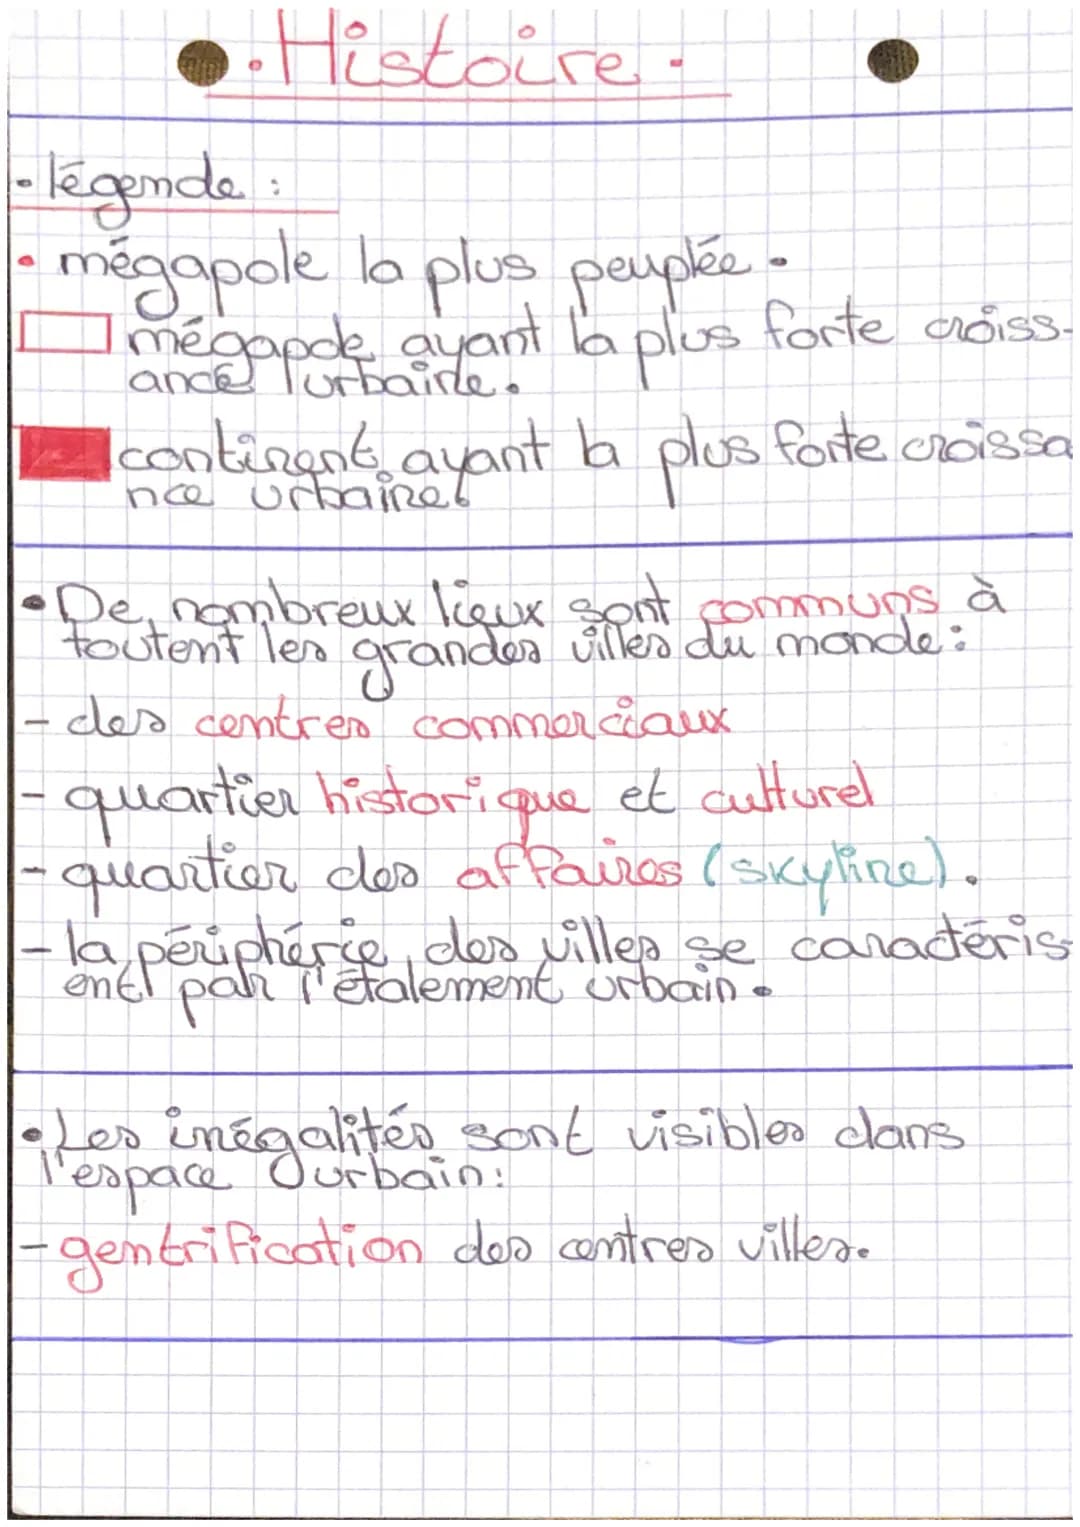 . Histoire .
- légende :
• mégapole la plus peuplée .
mégapole ayant la plus forte croiss-
ance urbaine.
continent ayant la plus forte croissa
nce urbaine.
• De nombreux lieux sont communs à
toutent les grandes villes du monde :
- des centres commerciaux
- quartier historique et culturel
- quartier des affaires (skyline).
- la périphérie des villes se caractéris-
ent par l'étalement urbain.
• Les inégalités sont visibles dans
l'espace urbain:
- gentrification des centres villes.